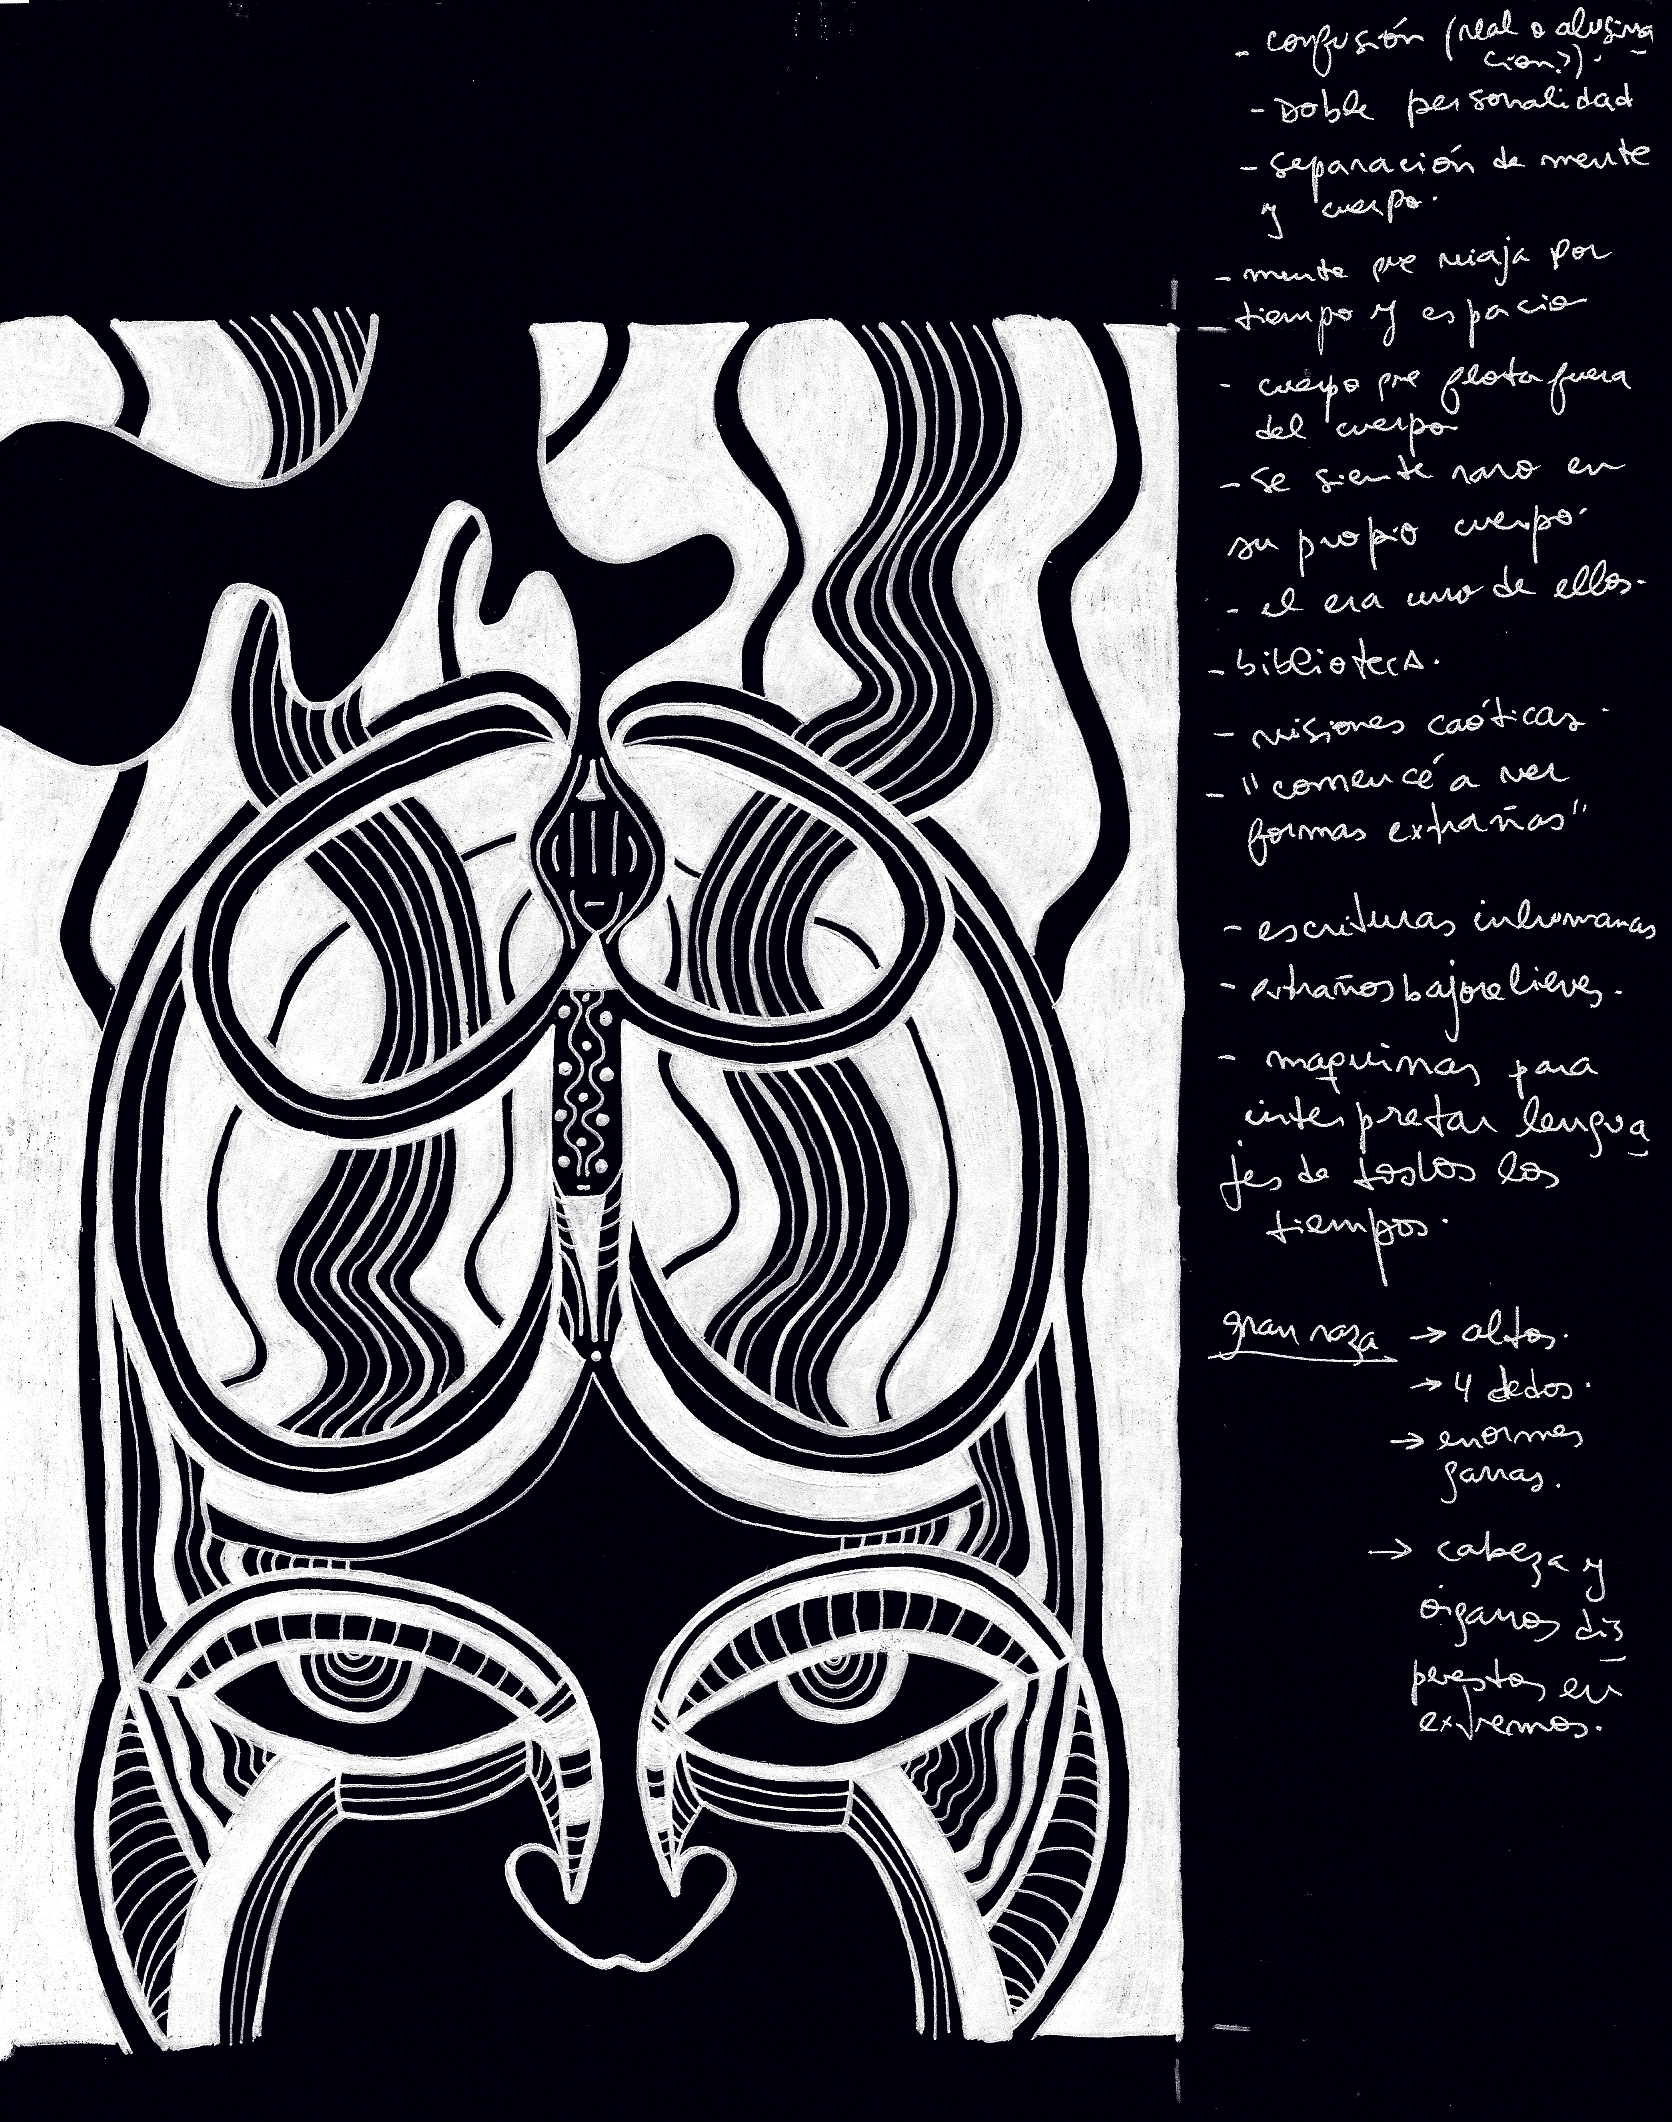 - confusión (real o alusina
cion?).
- Doble personalidad
- separación de mente
y cuerpo.
- mente que viaja por
tiempo y espacio
- cuerpo que flota fuera
del cuerpo
- se siente raro en
su propio cuerpo.
- el era uno de ellos.
- biblioteca.
- visiones caóticas.
- "comencé a ver
formas extrañas"
- escrituras inhumanas
- extraños bajorelieves.
- maquinas para
interpretar lengua
jes de todos los
tiempos.
gran raza → altos.
→ 4 dedos.
→ enormes
garras.
→ cabeza y
órganos dis
puestos en
extremos.